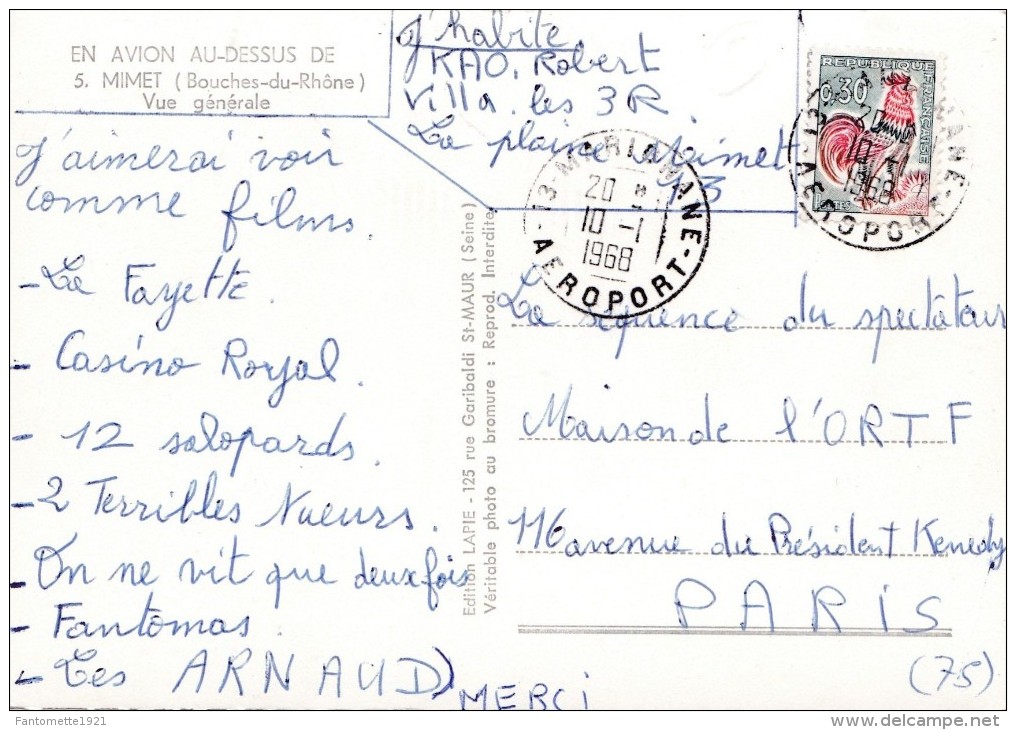 EN AVION AU-DESSUS DE
5. MIMET (Bouches-du-Rhône)
Vue générale
J'habite
KAO. Robert
Villa. les 3 R.
La plaine
13
J'aimerai voir
comme films.
- La Fayette.
- Casino Royal.
- 12 salopards.
- 2 Terribles
- On ne vit que deux fois
- Fantômas.
- Les ARNAUD)
MERCI
Edition LAPIE - 125 rue Garibaldi St-MAUR (Seine)
Véritable photo au bromure : Reprod. Interdite
13-MARIGNANE-
20
10 -1
1968
AEROPORT-
REPUBLIQUE FRANÇAISE
0,30
POSTES
10 -1
1968
La séquence du spectâteur
Maison de l'ORTF
116 avenue du Président Kenedy
PARIS
(75)
Fantomette1921
www.delcampe.net